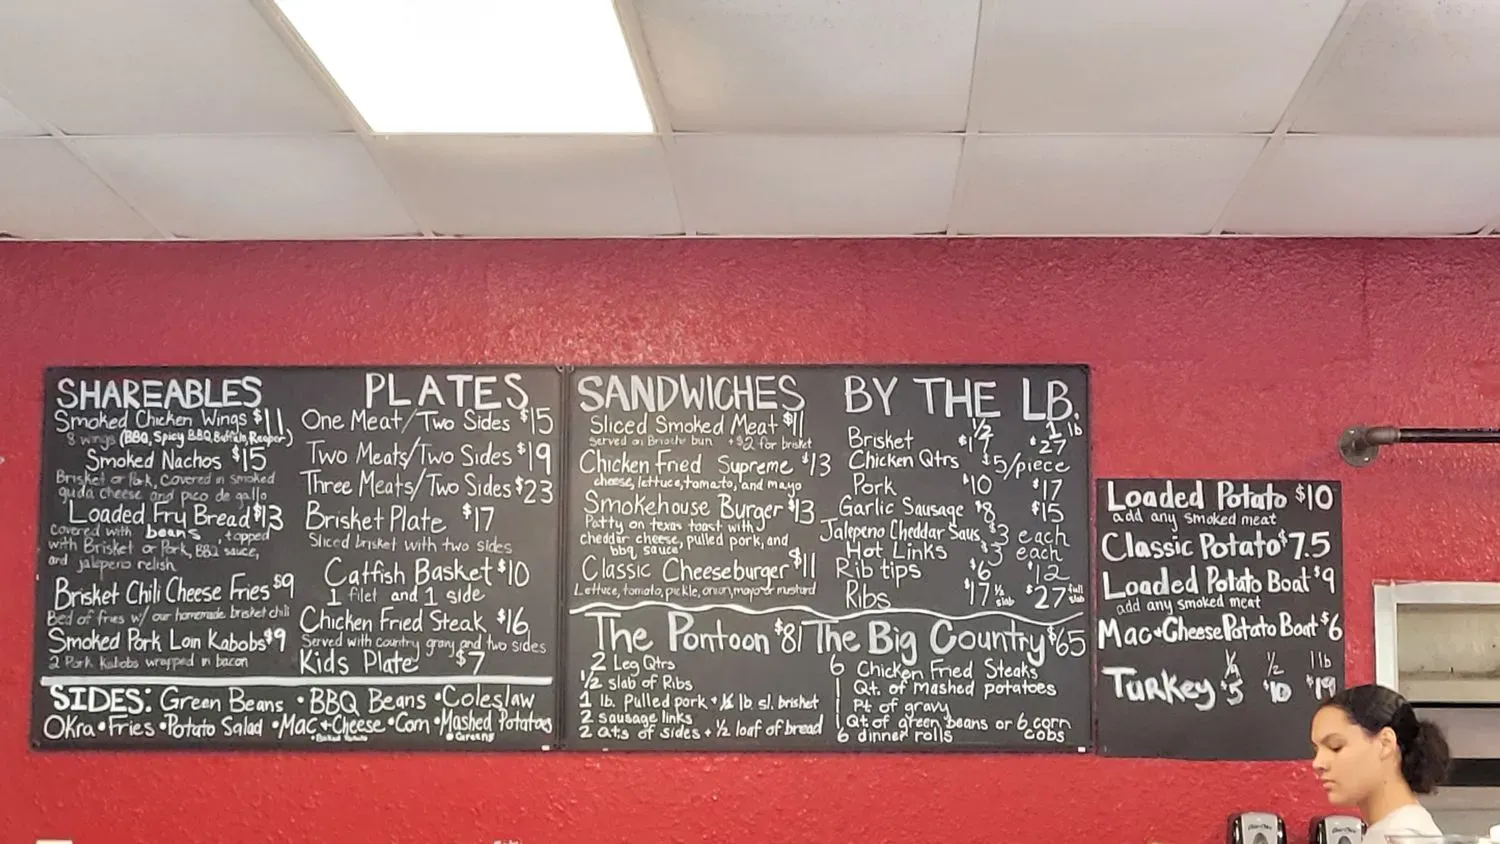 SHAREABLES
Smoked Chicken Wings $11
8 wings (BBQ, Spicy BBQ, Buffalo, Reaper)
Smoked Nachos $15
Brisket or Pork, covered in smoked
guda cheese and pico de gallo
Loaded Fry Bread $13
covered with beans, topped
with Brisket or Pork, BBQ sauce,
and jalepeno relish
Brisket Chili Cheese Fries $9
Bed of fries w/ our homemade brisket chili
Smoked Pork Loin Kabobs $9
2 Pork Kabobs wrapped in bacon
PLATES
One Meat/Two Sides $15
Two Meats/Two Sides $19
Three Meats/Two Sides $23
Brisket Plate $17
Sliced brisket with two sides
Catfish Basket $10
1 filet and 1 side
Chicken Fried Steak $16
Served with country gravy and two sides
Kids Plate $7
SIDES: Green Beans • BBQ Beans • Coleslaw
Okra • Fries • Potato Salad • Mac + Cheese • Corn • Mashed Potatoes
SANDWICHES
Sliced Smoked Meat $11
Served on Brioche bun +$2 for brisket
Chicken Fried Supreme $13
cheese, lettuce, tomato, and mayo
Smokehouse Burger $13
Patty on texas toast with
cheddar cheese, pulled pork, and
bbq sauce
Classic Cheeseburger $11
Lettuce, tomato, pickle, onion, mayo or mustard
BY THE LB.
1/2 1 lb
Brisket $14 $27
Chicken Qtrs $5/piece
Pork $10 $17
Garlic Sausage $8 $15
Jalepeno Cheddar Saus. $3 each
Hot Links $3 each
Rib tips $6 $12
Ribs $17 1/2 slab $27 full slab
The Pontoon $81
2 Leg Qtrs
1/2 slab of Ribs
1 lb. Pulled pork + 1/2 lb sl. brisket
2 sausage links
2 qts of sides + 1/2 loaf of bread
The Big Country $65
6 Chicken Fried Steaks
1 Qt. of mashed potatoes
1 Pt of gravy
1 Qt of green beans or 6 corn
cobs
6 dinner rolls
Loaded Potato $10
add any smoked meat
Classic Potato $7.5
Loaded Potato Boat $9
add any smoked meat
Mac+Cheese Potato Boat $6
1/4 1/2 1 lb
Turkey $5 $10 $19